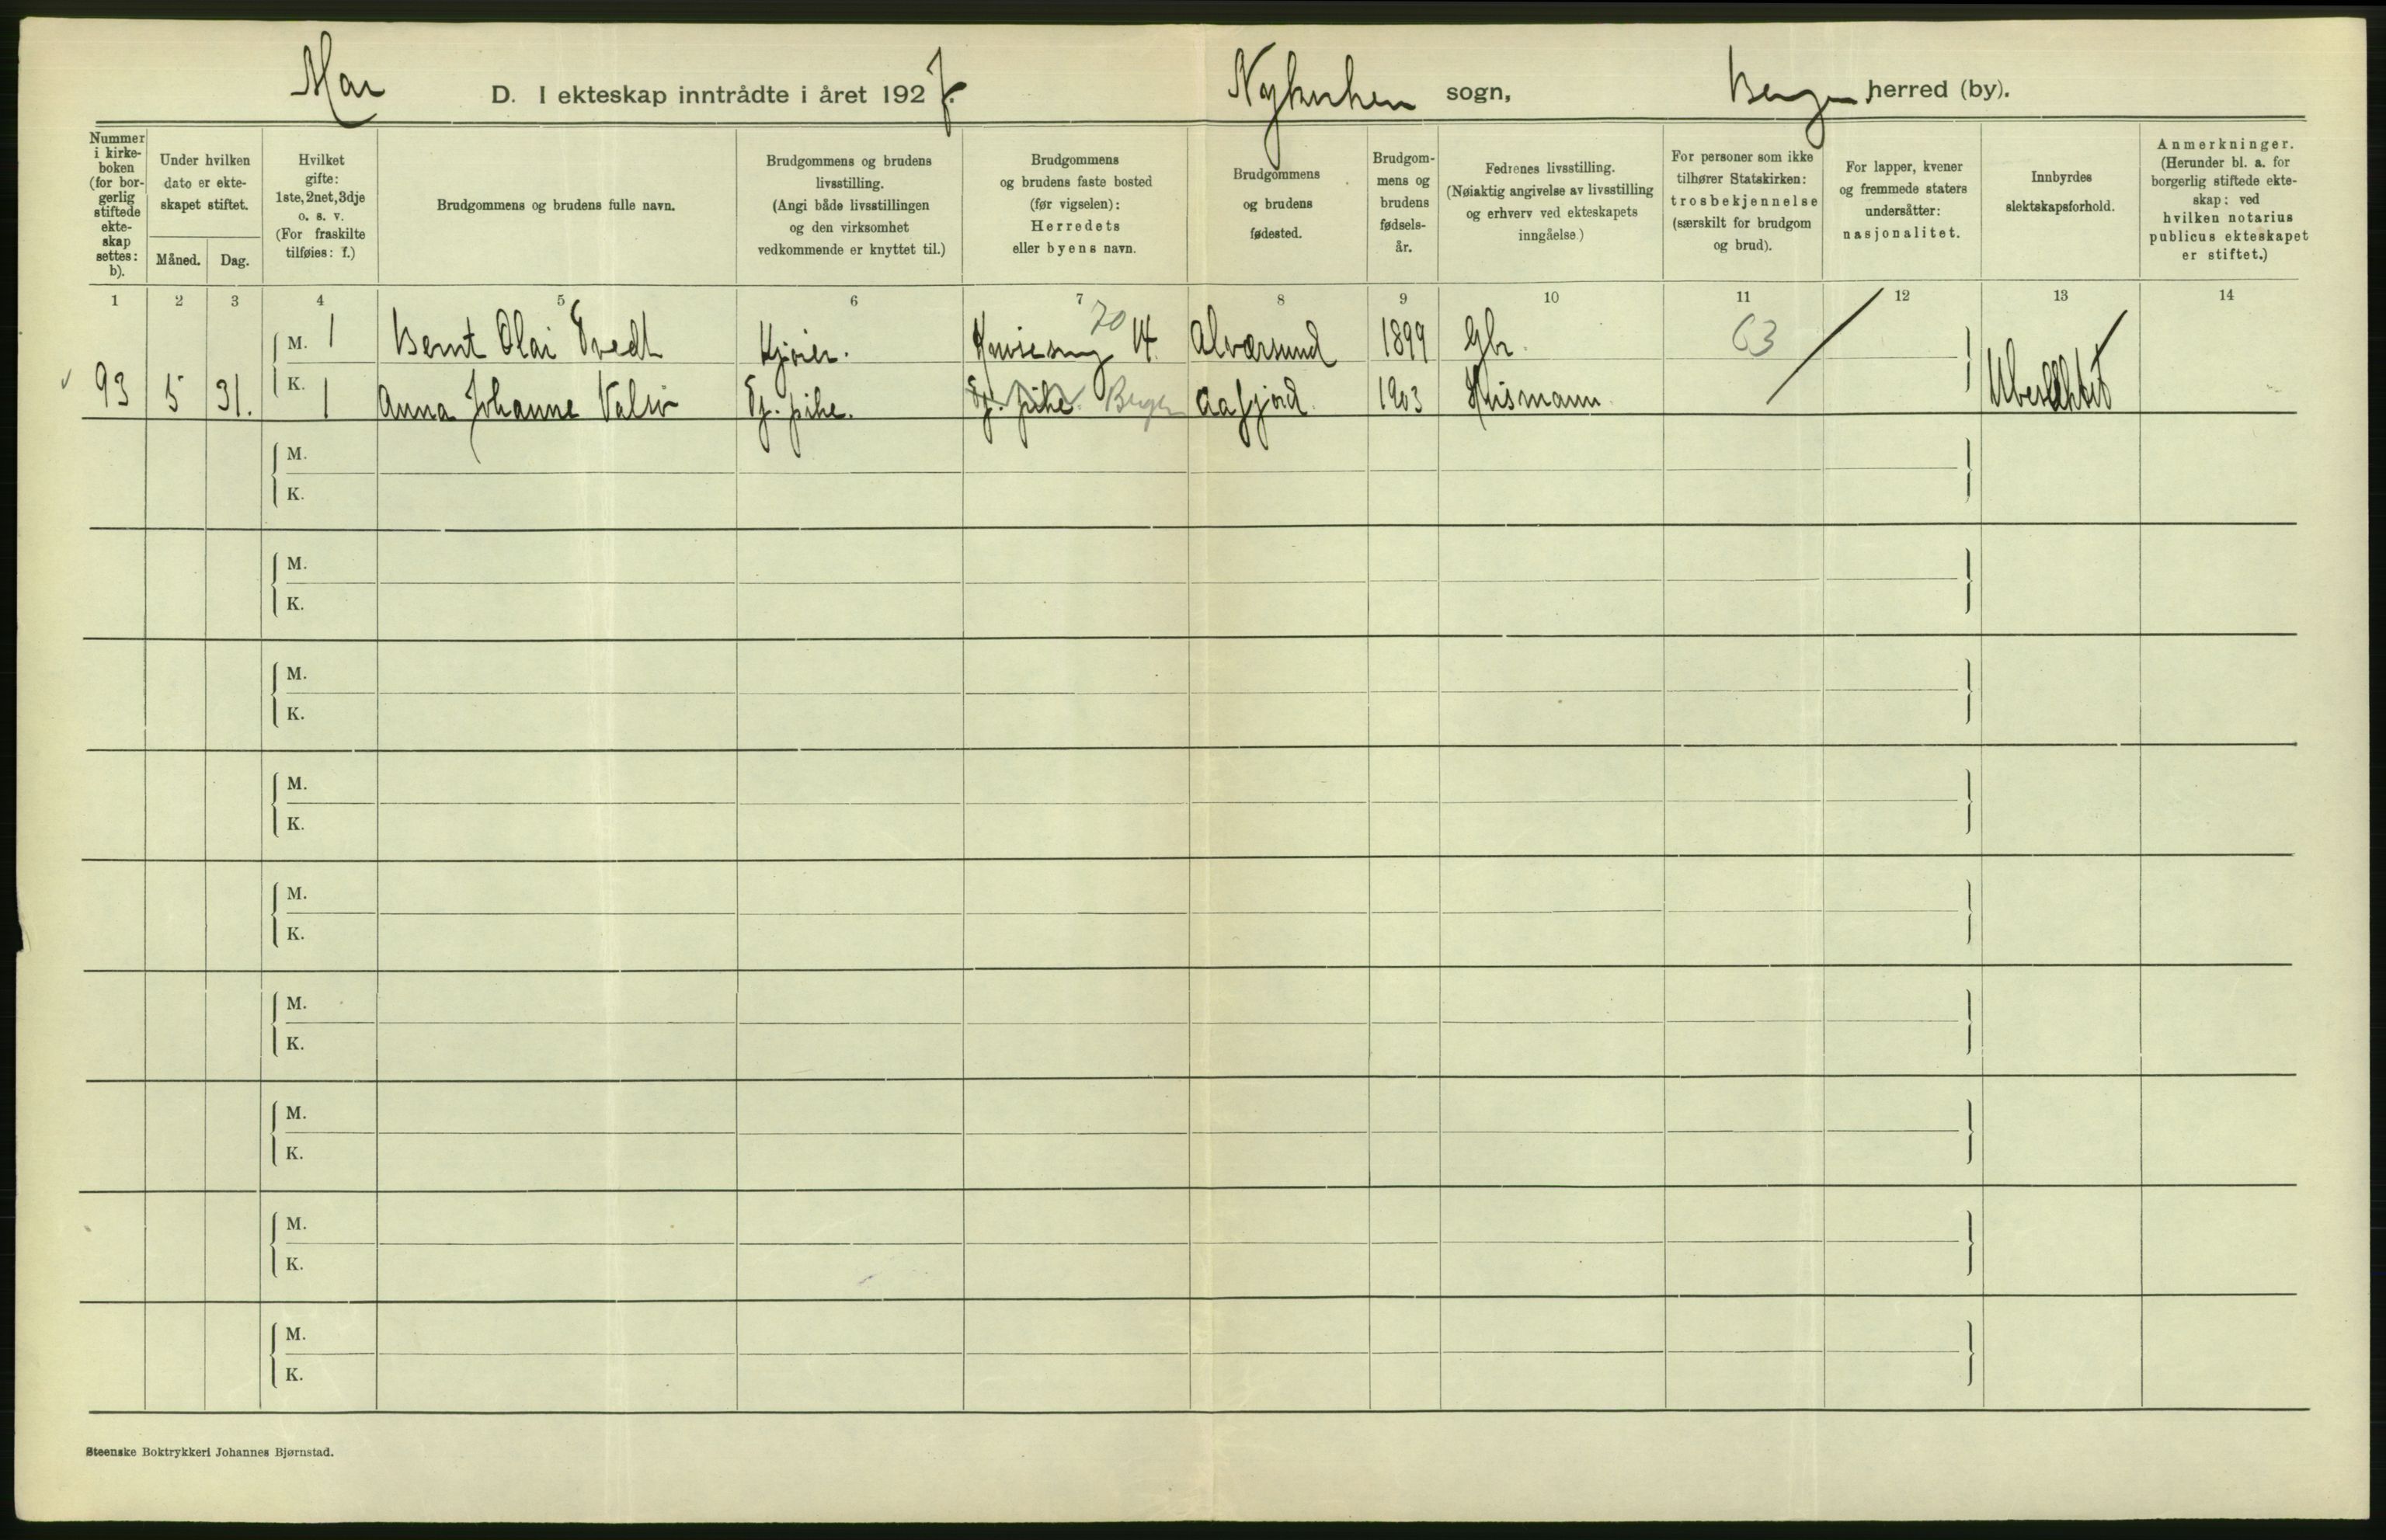 Mai D. I ekteskap inntrådte i året 1927. Nykirken sogn, Bergen herred (by).
Nummer i kirke-boken (for bor-gerlig stiftede ekte-skap settes: b).
Under hvilken dato er ekte-skapet stiftet.
Måned. Dag.
Hvilket gifte: 1ste, 2net, 3dje o. s. v. (For fraskilte tilføies: f.)
Brudgommens og brudens fulle navn.
Brudgommens og brudens livsstilling. (Angi både livsstillingen og den virksomhet vedkommende er knyttet til.)
Brudgommens og brudens faste bosted (før vigselen): Herredets eller byens navn.
Brudgommens og brudens fødested.
Brudgom-mens og brudens fødsels-år.
Fedrenes livsstilling. (Nøiaktig angivelse av livsstilling og erhverv ved ekteskapets inngåelse.)
For personer som ikke tilhører Statskirken: trosbekjennelse (særskilt for brudgom og brud).
For lapper, kvener og fremmede staters undersåtter: nasjonalitet.
Innbyrdes slektskapsforhold.
Anmerkninger. (Herunder bl. a. for borgerlig stiftede ekte-skap: ved hvilken notarius publicus ekteskapet er stiftet.)
1 2 3 4 5 6 7 8 9 10 11 12 13 14
M. 1 Bernt Olai Tvedt Kjører. 70 14 Alversund 1899 Gbr. 63
93 5 31. K. 1 Anna Johanne Valsø Tj. pike. Tj. pike. Bergen Aafjord. 1903 Husmann. Ubeslektet
M.
K.
M.
K.
M.
K.
M.
K.
M.
K.
M.
K.
M.
K.
M.
K.
M.
K.
Steenske Boktrykkeri Johannes Bjørnstad.